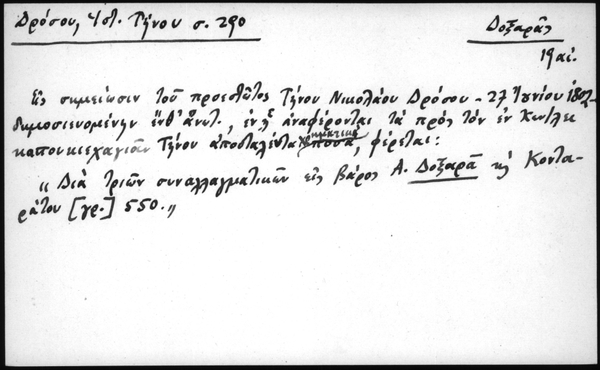 Δρόσου, Ἱστ. Τήνου σ. 290
Δοξαρᾶς
19 αἰ.
Εἰς σημείωσιν τοῦ προεστῶτος Τήνου Νικολάου Δρόσου - 27 Ἰουνίου 1802 -
δημοσιευομένην ἐνθ' ἀνωτ., ἐν ᾗ ἀναφέρονται τὰ πρὸς τὸν ἐν Κων/λει
καπουκιεχαγιᾶν Τήνου ἀποσταλέντα χρηματικὰ ποσά, φέρεται:
"Διὰ τριῶν συναλλαγματικῶν εἰς βάρος Α. Δοξαρᾶ κὴ Κοντα-
ράτου [γρ.] 550."